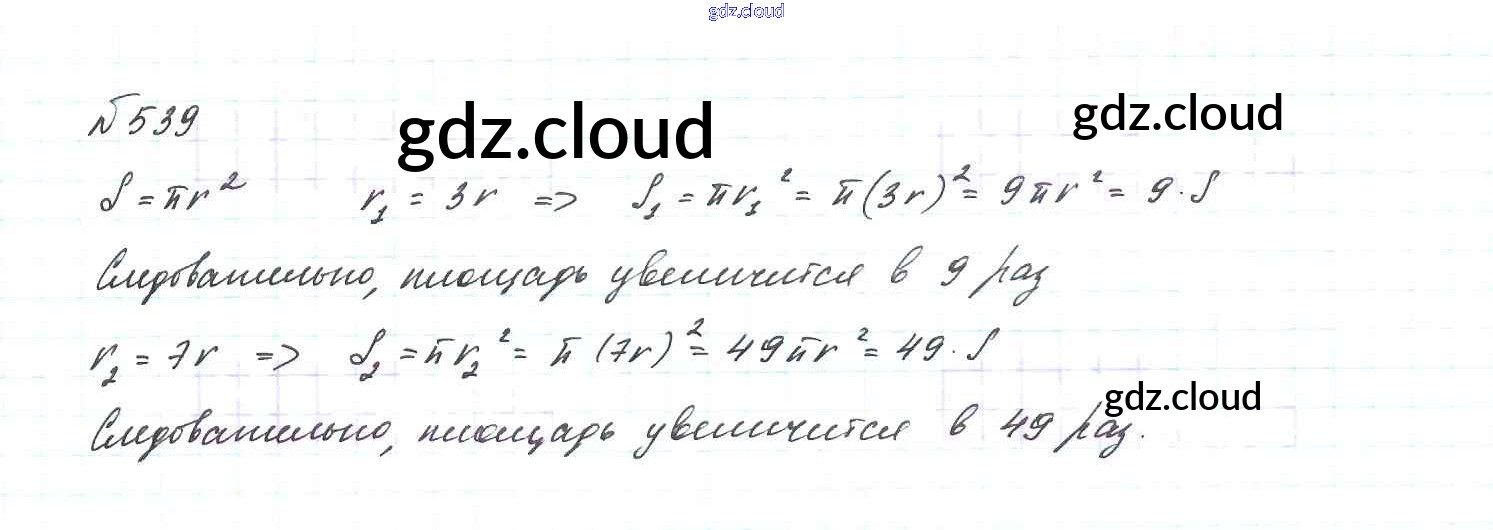 gdz.cloud
№539
gdz.cloud
gdz.cloud
S = πr² r₁ = 3r => S₁ = πr₁² = π(3r)² = 9πr² = 9·S
Следовательно, площадь увеличится в 9 раз
r₂ = 7r => S₂ = πr₂² = π(7r)² = 49πr² = 49·S
gdz.cloud
Следовательно, площадь увеличится в 49 раз.